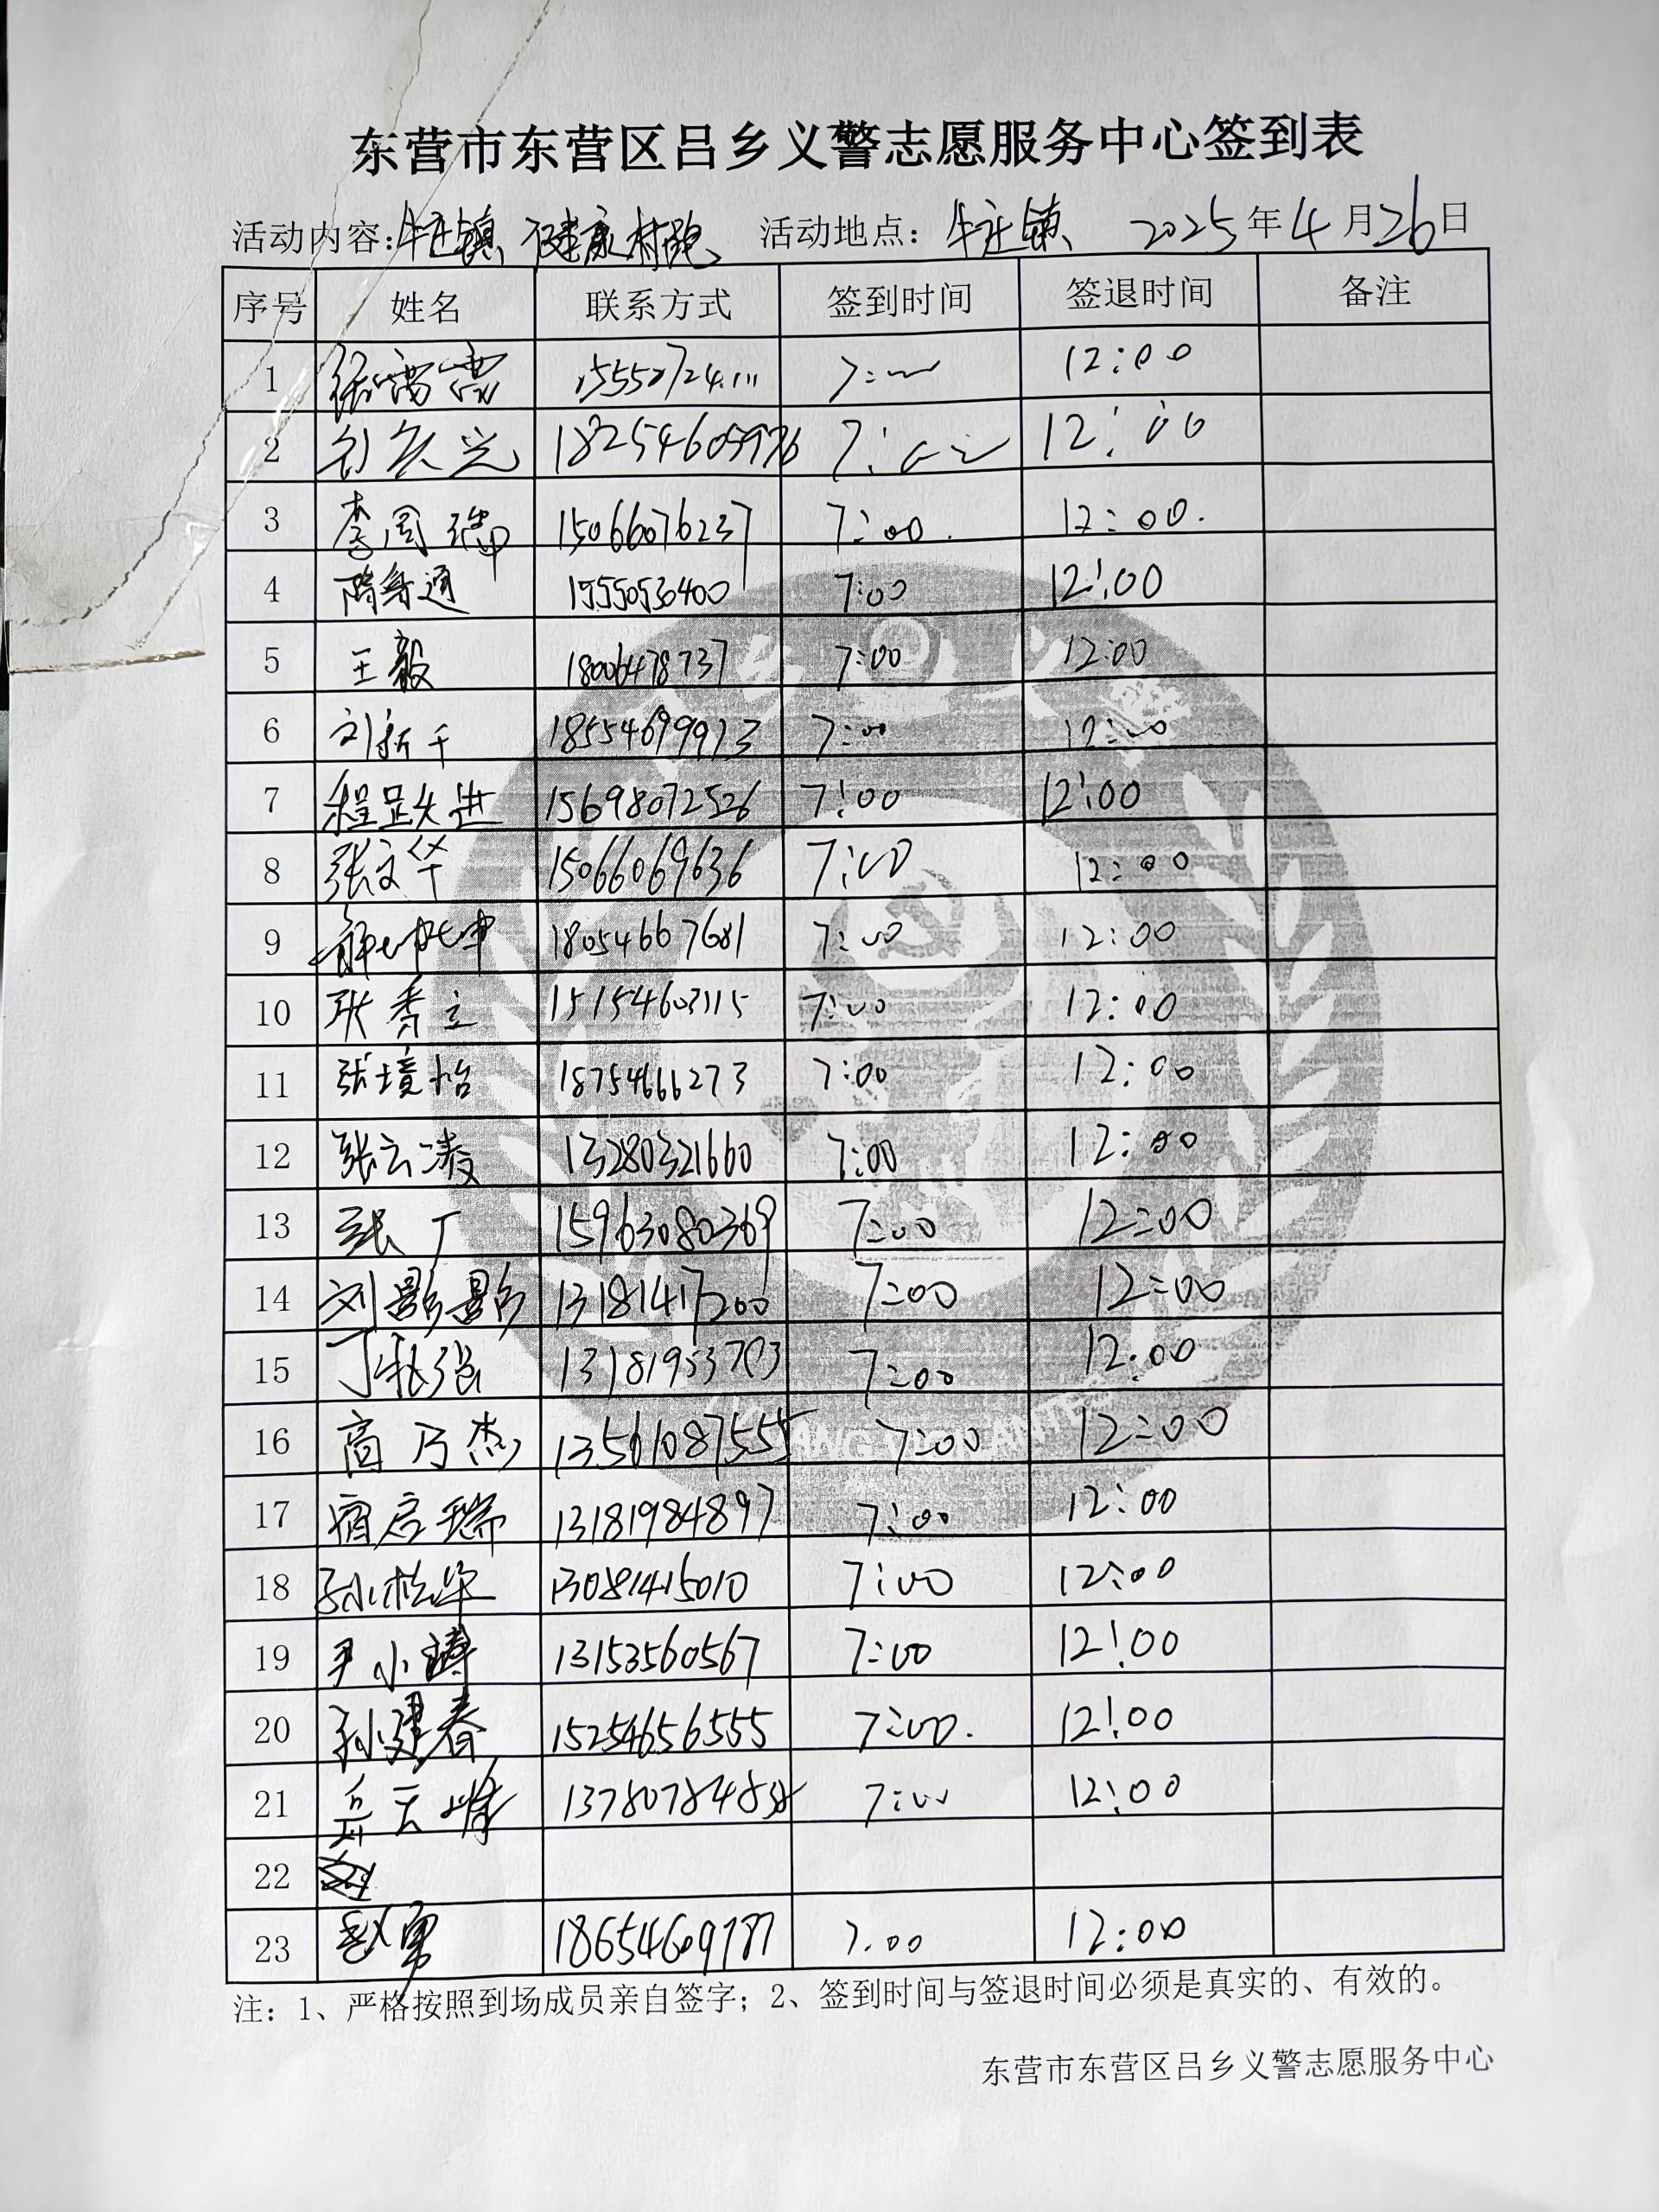 东营市东营区吕乡义警志愿服务中心签到表
活动内容：牛庄镇 健康村跑 活动地点：牛庄镇 2025年4月26日
序号 姓名 联系方式 签到时间 签退时间 备注
1 12:00
2 18254605976 12:00
3 李周瑞 15066076237 7:00 12:00
4 隋寿通 15550530400 7:00 12:00
5 王毅 18006478737 7:00 12:00
6 刘新千 18554699913 7:00 12:00
7 程跃进 15698072526 7:00 12:00
8 张文华 15066069636 7:00 12:00
9 18054667681 7:00 12:00
10 张秀立 15154603115 7:00 12:00
11 张境怡 18754666273 7:00 12:00
12 张云凌 13280321660 7:00 12:00
13 张丁 15963080369 7:00 12:00
14 刘影影 13181417200 7:00 12:00
15 丁振强 13181953703 7:00 12:00
16 商乃杰 13561087555 7:00 12:00
17 宿启瑞 13181984897 7:00 12:00
18 孙松华 13081415010 7:00 12:00
19 尹小涛 13153560567 7:00 12:00
20 孙建春 15254656555 7:00 12:00
21 岳云峰 7:00 12:00
22
23 赵勇 18654609787 7:00 12:00
注：1、严格按照到场成员亲自签字；2、签到时间与签退时间必须是真实的、有效的。
东营市东营区吕乡义警志愿服务中心